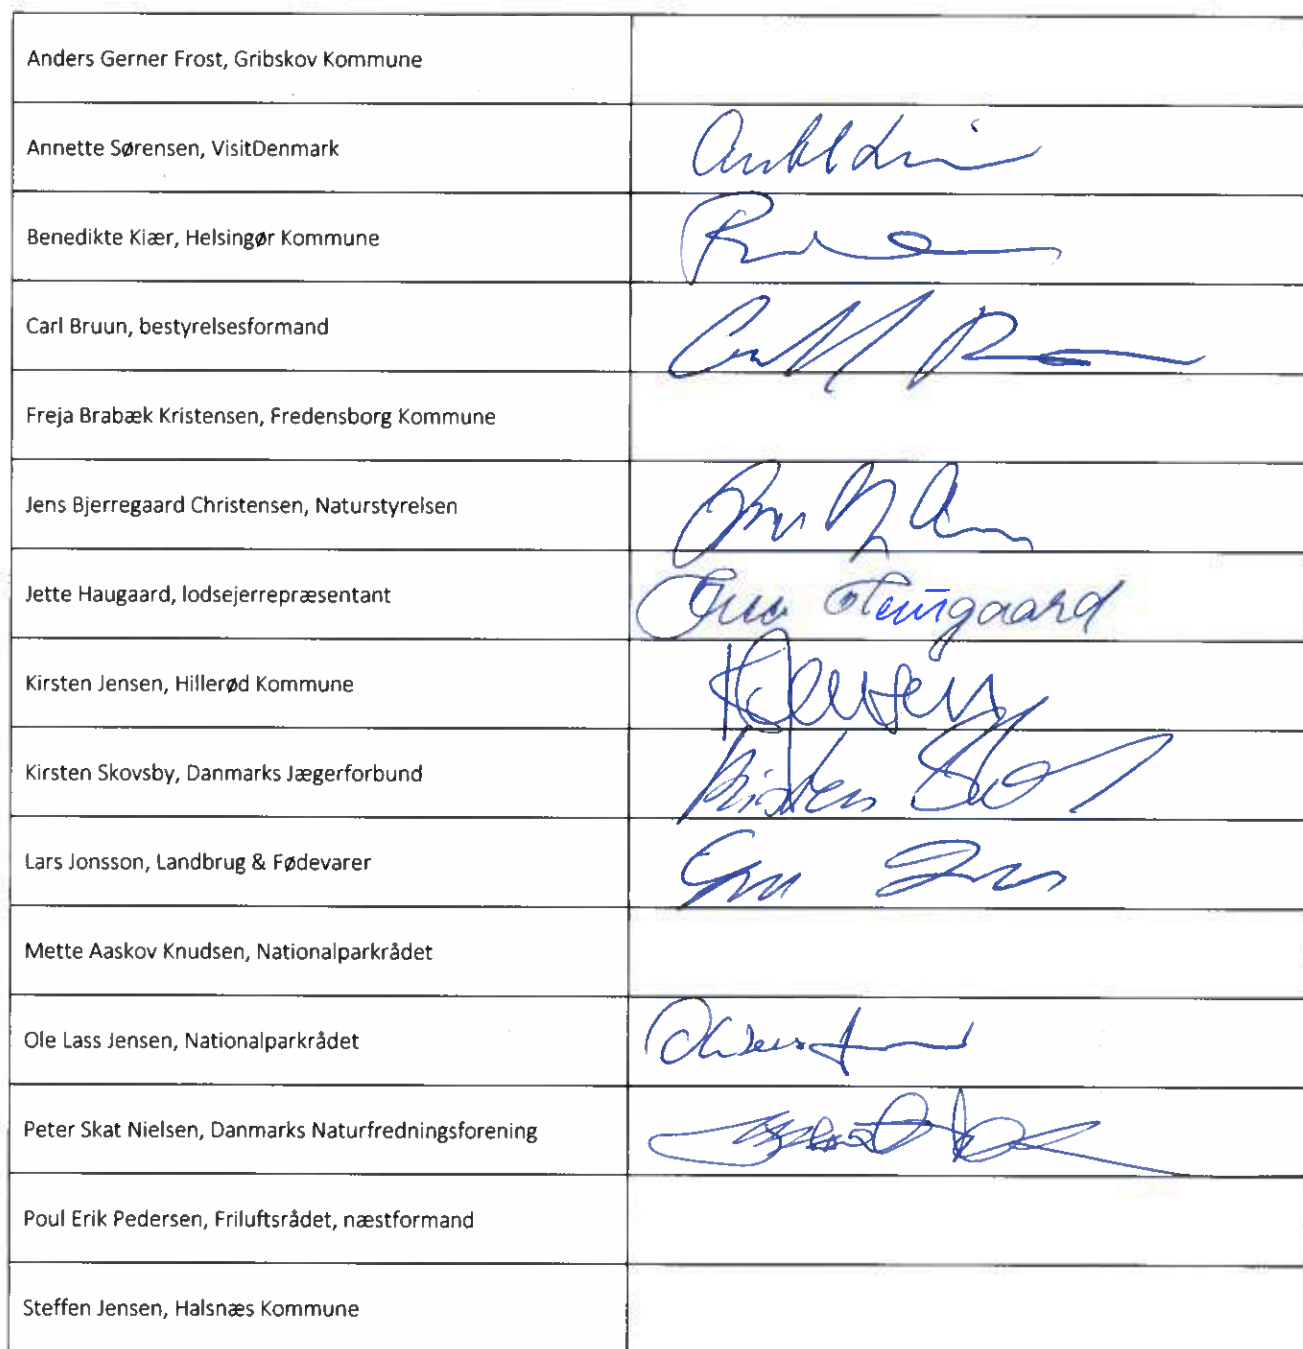 Anders Gerner Frost, Gribskov Kommune
Annette Sørensen, VisitDenmark
Benedikte Kiær, Helsingør Kommune
Carl Bruun, bestyrelsesformand
Freja Brabæk Kristensen, Fredensborg Kommune
Jens Bjerregaard Christensen, Naturstyrelsen
Jette Haugaard, lodsejerrepræsentant
Kirsten Jensen, Hillerød Kommune
KJensen
Kirsten Skovsby, Danmarks Jægerforbund
Kirsten
Lars Jonsson, Landbrug & Fødevarer
Mette Aaskov Knudsen, Nationalparkrådet
Ole Lass Jensen, Nationalparkrådet
Peter Skat Nielsen, Danmarks Naturfredningsforening
Poul Erik Pedersen, Friluftsrådet, næstformand
Steffen Jensen, Halsnæs Kommune